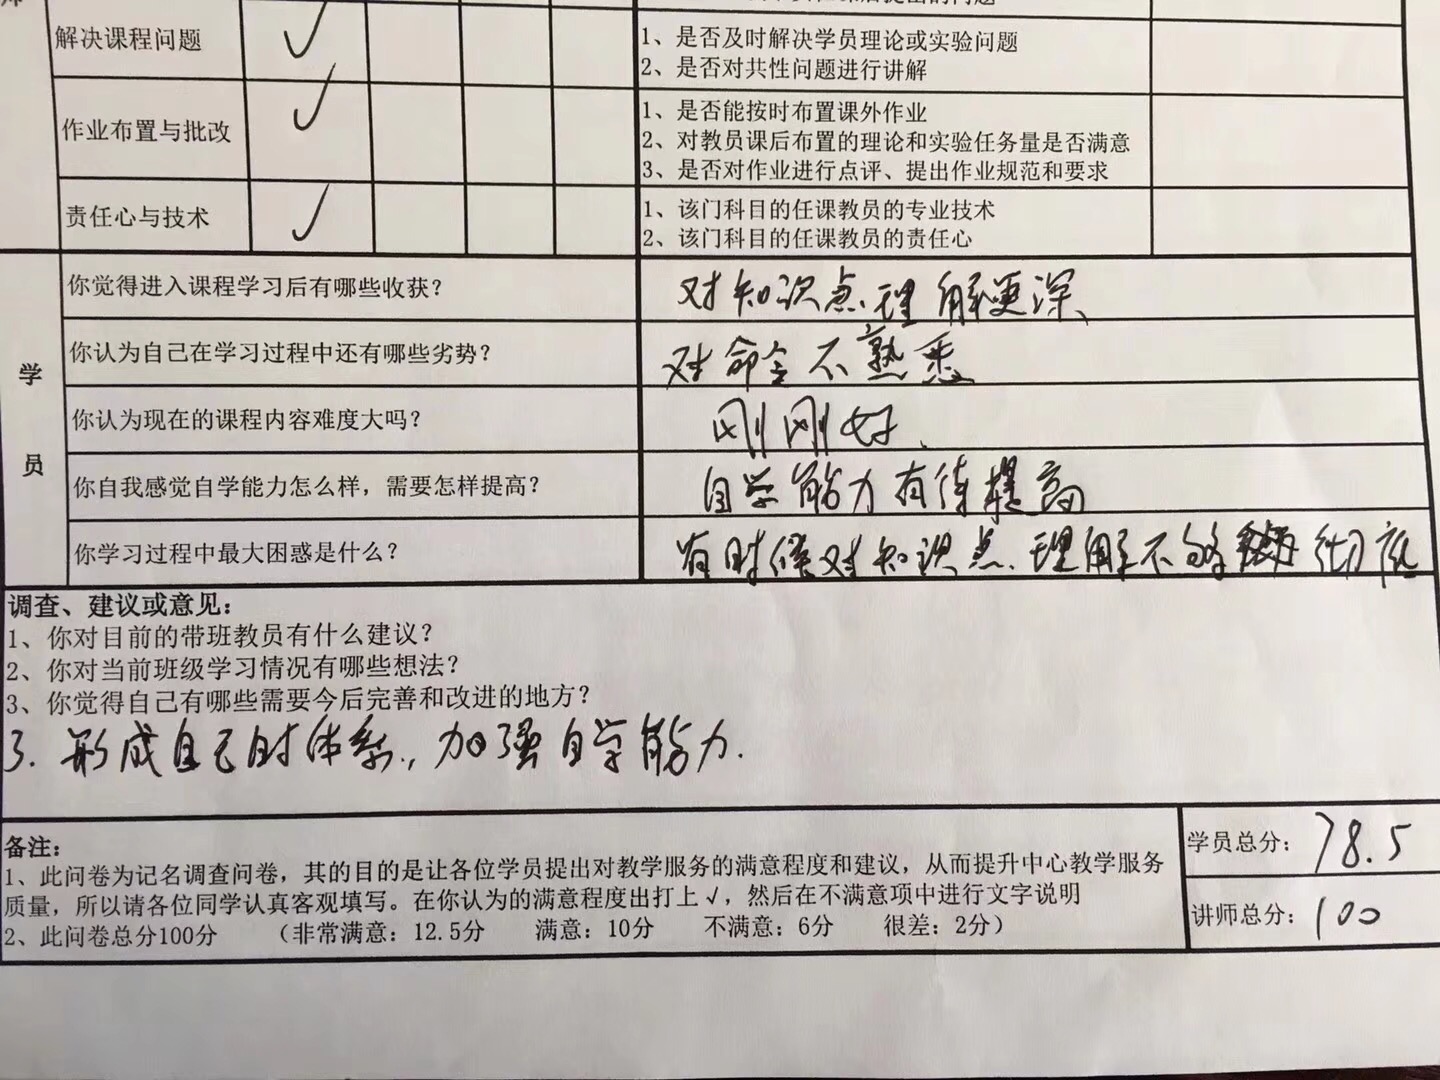 解决课程问题 ✓ 1、是否及时解决学员理论或实验问题
2、是否对共性问题进行讲解
作业布置与批改 ✓ 1、是否能按时布置课外作业
2、对教员课后布置的理论和实验任务量是否满意
3、是否对作业进行点评、提出作业规范和要求
责任心与技术 ✓ 1、该门科目的任课教员的专业技术
2、该门科目的任课教员的责任心
学员
你觉得进入课程学习后有哪些收获？ 对知识点理解更深、
你认为自己在学习过程中还有哪些劣势？ 对命令不熟悉
你认为现在的课程内容难度大吗？ 刚刚好、
你自我感觉自学能力怎么样，需要怎样提高？ 自学能力有待提高
你学习过程中最大困惑是什么？ 有时候对知识点理解不够彻底
调查、建议或意见：
1、你对目前的带班教员有什么建议？
2、你对当前班级学习情况有哪些想法？
3、你觉得自己有哪些需要今后完善和改进的地方？
3. 形成自己的体系，加强自学能力.
备注：
1、此问卷为记名调查问卷，其的目的是让各位学员提出对教学服务的满意程度和建议，从而提升中心教学服务
质量，所以请各位同学认真客观填写。在你认为的满意程度出打上√，然后在不满意项中进行文字说明
2、此问卷总分100分 （非常满意：12.5分 满意：10分 不满意：6分 很差：2分）
学员总分：78.5
讲师总分：100